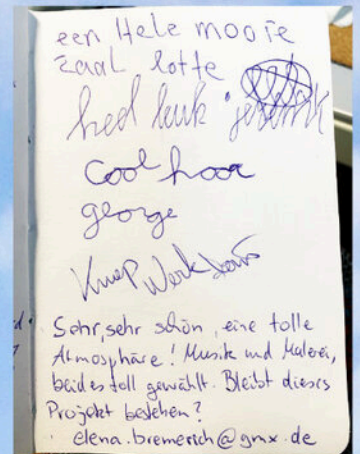 een Hele mooie
zaal lotte
heel leuk
cool hoor
george
Knap Werk
Sehr, sehr schön, eine tolle
Atmosphäre! Musik und Malerei,
beides toll gewählt. Bleibt dieses
Projekt bestehen?
elena.bremerich@gmx.de